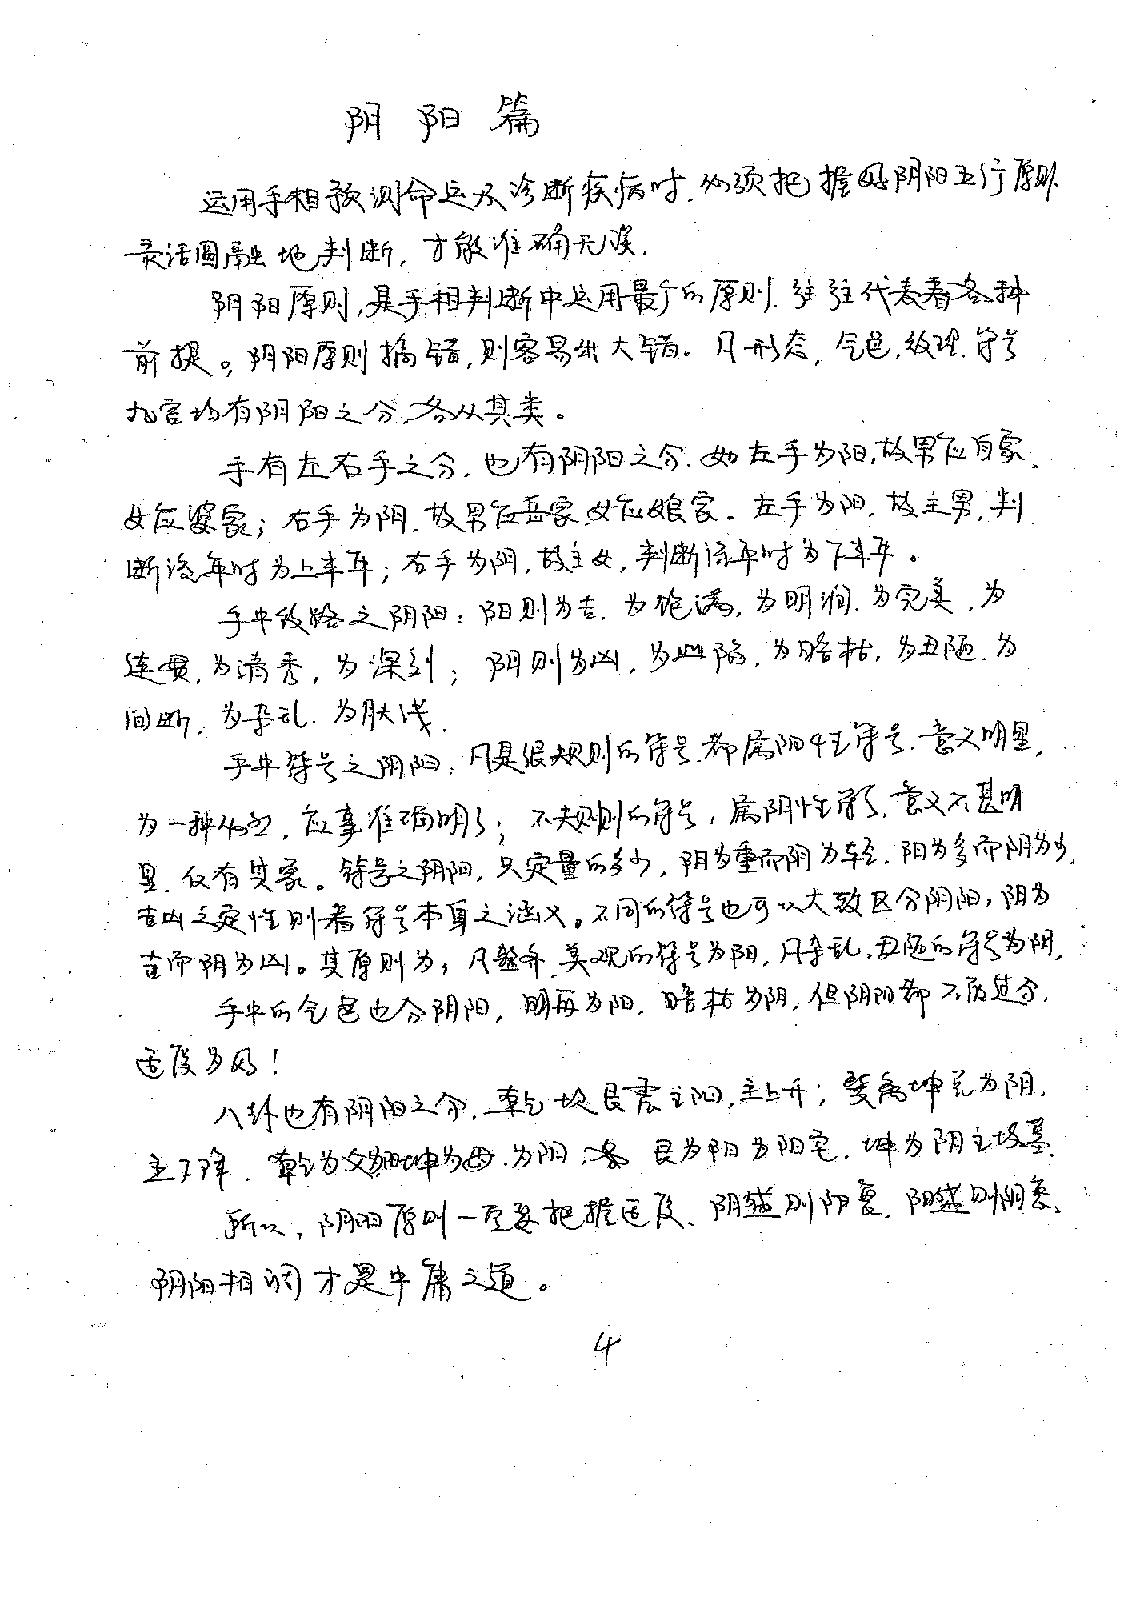 阴阳篇
运用手相预测命运及诊断疾病时，必须把握好阴阳五行原则，
灵活圆融地判断，才能准确无误．
阴阳原则，是手相判断中运用最广的原则．往往代表着各种
前提。阴阳原则搞错，则容易出大错。凡形态，气色，纹理．符号
九宫均有阴阳之分，各从其类。
手有左右手之分．也有阴阳之分．如左手为阳，故男应自家．
女应婆家；右手为阴．故男应岳家，女应娘家。左手为阳．故主男，判
断流年时为上半年；右手为阴，故主女，判断流年时为下半年。
手中纹路之阴阳：阳则为吉．为饱满，为明润．为完美，为
连贯，为清秀，为深刻；阴则为凶，为凹陷，为暗枯，为丑陋．为
间断．为杂乱．为肤浅．
手中符号之阴阳：凡是很规则的符号．都属阳性符号．意义明显．
为一种，应事准确明了；不规则的符号，属阴性符号．意义不甚明
显．仅有其象。符号之阴阳，只定量的多少，阴为重而阴为轻．阳为多而阴为少．
吉凶之定性则看符号本身之涵义。不同的符号也可以大致区分阴阳，阴为
吉而阴为凶。其原则为：凡整齐．美观的符号为阳，凡杂乱．丑陋的符号为阴．
手中的气色也分阴阳，明为阳．暗枯为阴，但阴阳都不能过分．
适度为好！
八卦也有阴阳之分．乾坎艮震主阳，主上升；巽离坤兑为阴．
主下降．乾为父为阳坤为母．为阴．艮为阳为阳宅．坤为阴主坟墓．
所以，阴阳原则一定要把握适度、阴盛则阳衰．阳盛则阴衰、
阴阳相调才是中庸之道。
4